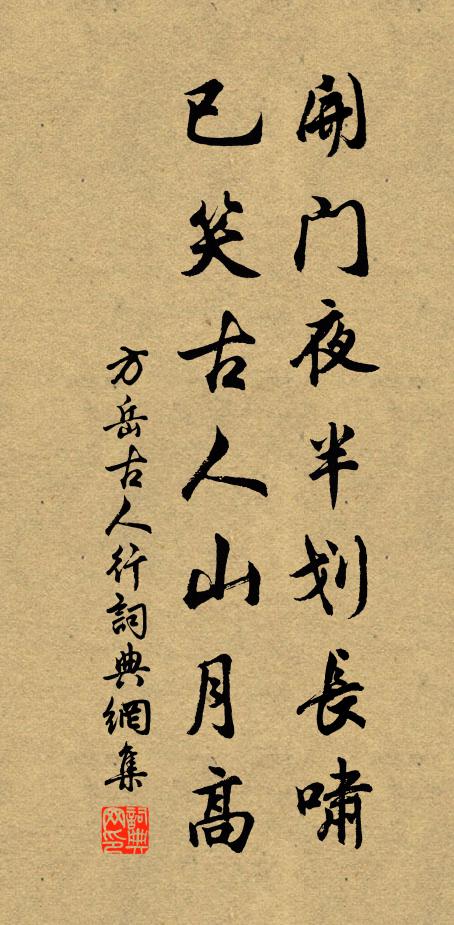 開門夜半划長嘯
已笑古人山月高
方岳古人行詞典網集
詞典網印